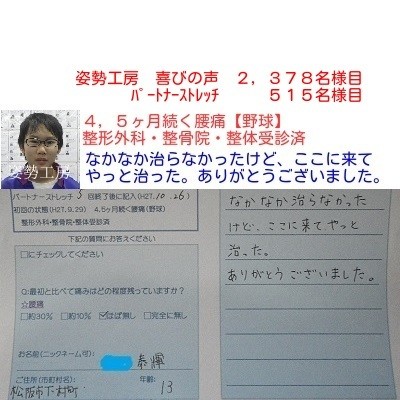 姿勢工房 喜びの声 2，378名様目
ﾊﾟｰﾄﾅｰｽﾄﾚｯﾁ 515名様目
4，5ヶ月続く腰痛【野球】
整形外科・整骨院・整体受診済
なかなか治らなかったけど、ここに来て
やっと治った。ありがとうございました。
姿勢工房
パートナーストレッチ 5回終了後に記入(H27.10.26)
初回の状態(H27.9.29) 4.5ヶ月続く腰痛(野球)
整形外科・整骨院・整体受診済
下記の質問にお答えください
□にチェックしてください
Q:最初と比べて痛みはどの程度残っていますか?
☆腰痛
□約30% □約10% ☑ほぼ無し □完全に無し
お名前(ニックネーム可): 泰輝
ご住所(市町村名): 年齢:13
松阪市下村町
なかなか治らなかった
けど、ここに来て、やっと
治った。
ありがとうございました。